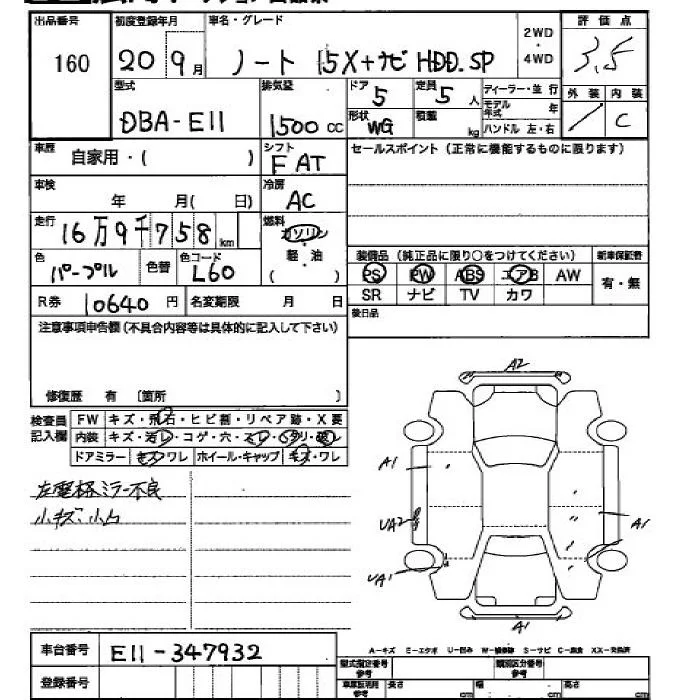 出品番号 初度登録年月 車名・グレード 2WD ・ 4WD 評価点
160 20 9月 ノート 15X+ナビ HDD.SP 3.5
型式 排気量 ドア 定員 ディーラー・並行 外装 内装
DBA-E11 1500 CC 5 5人 モデル年式 年 / C
形状 WG 積載 kg ハンドル 左・右
車歴 自家用・( ) シフト FAT セールスポイント (正常に機能するものに限ります)
車検 年 月( 日) 冷房 AC
走行 16万9千758km 燃料 ガソリン
軽・油
( )
色 パープル 色替 色コード L60
装備品 (純正品に限り○をつけてください) 新車保証書
PS PW ABS エアB AW 有・無
SR ナビ TV カワ
R券 10640円 名変期限 月 日 後日品
注意事項申告欄(不具合内容等は具体的に記入して下さい)
修復歴 有 〔箇所 〕
検査員記入欄
FW キズ・飛石・ヒビ割・リペア跡・X要
内装 キズ・汚レ・コゲ・穴・スレ・ 破レ
ドアミラー キズ ワレ ホイール・キャップ キズ・ワレ
左電格ミラー不良
小キズ、小凹
A2
A1
UA2
UA1
A1
A1
車台番号 E11-347932
登録番号
A-キズ E-エクボ U-凹み W-補修跡 S-サビ C-腐食 XX-交換済
型式指定番号 参考 類別区分番号 参考
車庫証明用 参考 長さ cm 幅 cm 高さ cm